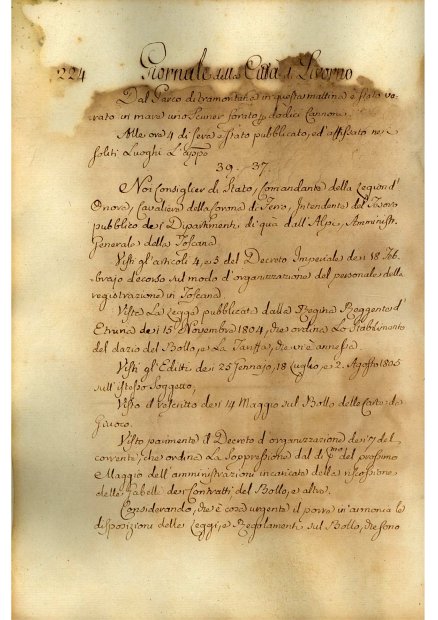 224 Giornale della Città di Livorno
Dal Parco di tramontana in questa mattina è stato va-
rato in mare uno Scuner forato p dodici Cannoni.
Alle ore 4 di sera è stato pubblicato, ed affissato nei
soliti Luoghi l'appo
39.-37.
Noi Consiglier di Stato, Comandante della Legion d'
Onore, Cavaliere della Corona di Ferro, Intendente del Tesoro
pubblico dei Dipartimenti di quà dall'Alpi, Amministr.
Generale della Toscana
Visti gl'articoli 4, e 5 del Decreto Imperiale dei 18 Feb-
brajo decorso sul modo d'organizzazione del personale della
registrazione in Toscana
Vista La Legge pubblicata dalla Regina Reggente d'
Etruria dei 15 Novembre 1804, che ordina Lo Stabilimento
del dazio del Bollo, e La Tariffa, che vi è annessa
Visti gl'Editti dei 25 Gennajo, 18 Luglio, e 2. Agosto 1805
sull'istesso Soggetto,
Visto il rescritto dei 14 Maggio sul Bollo delle Carte da
Giuoco.
Visto parimente il Decreto d'organizzazione dei 7 del
corrente, che ordina La Soppressione dal dì pmo del prossimo
Maggio dell'amministrazioni incaricate della riscossione
delle Gabelle dei Contratti del Bollo, e altro.
Considerando, che è cosa urgente il porre in armonia le
disposizioni delle Leggi, e Regolamenti sul Bollo, che sono